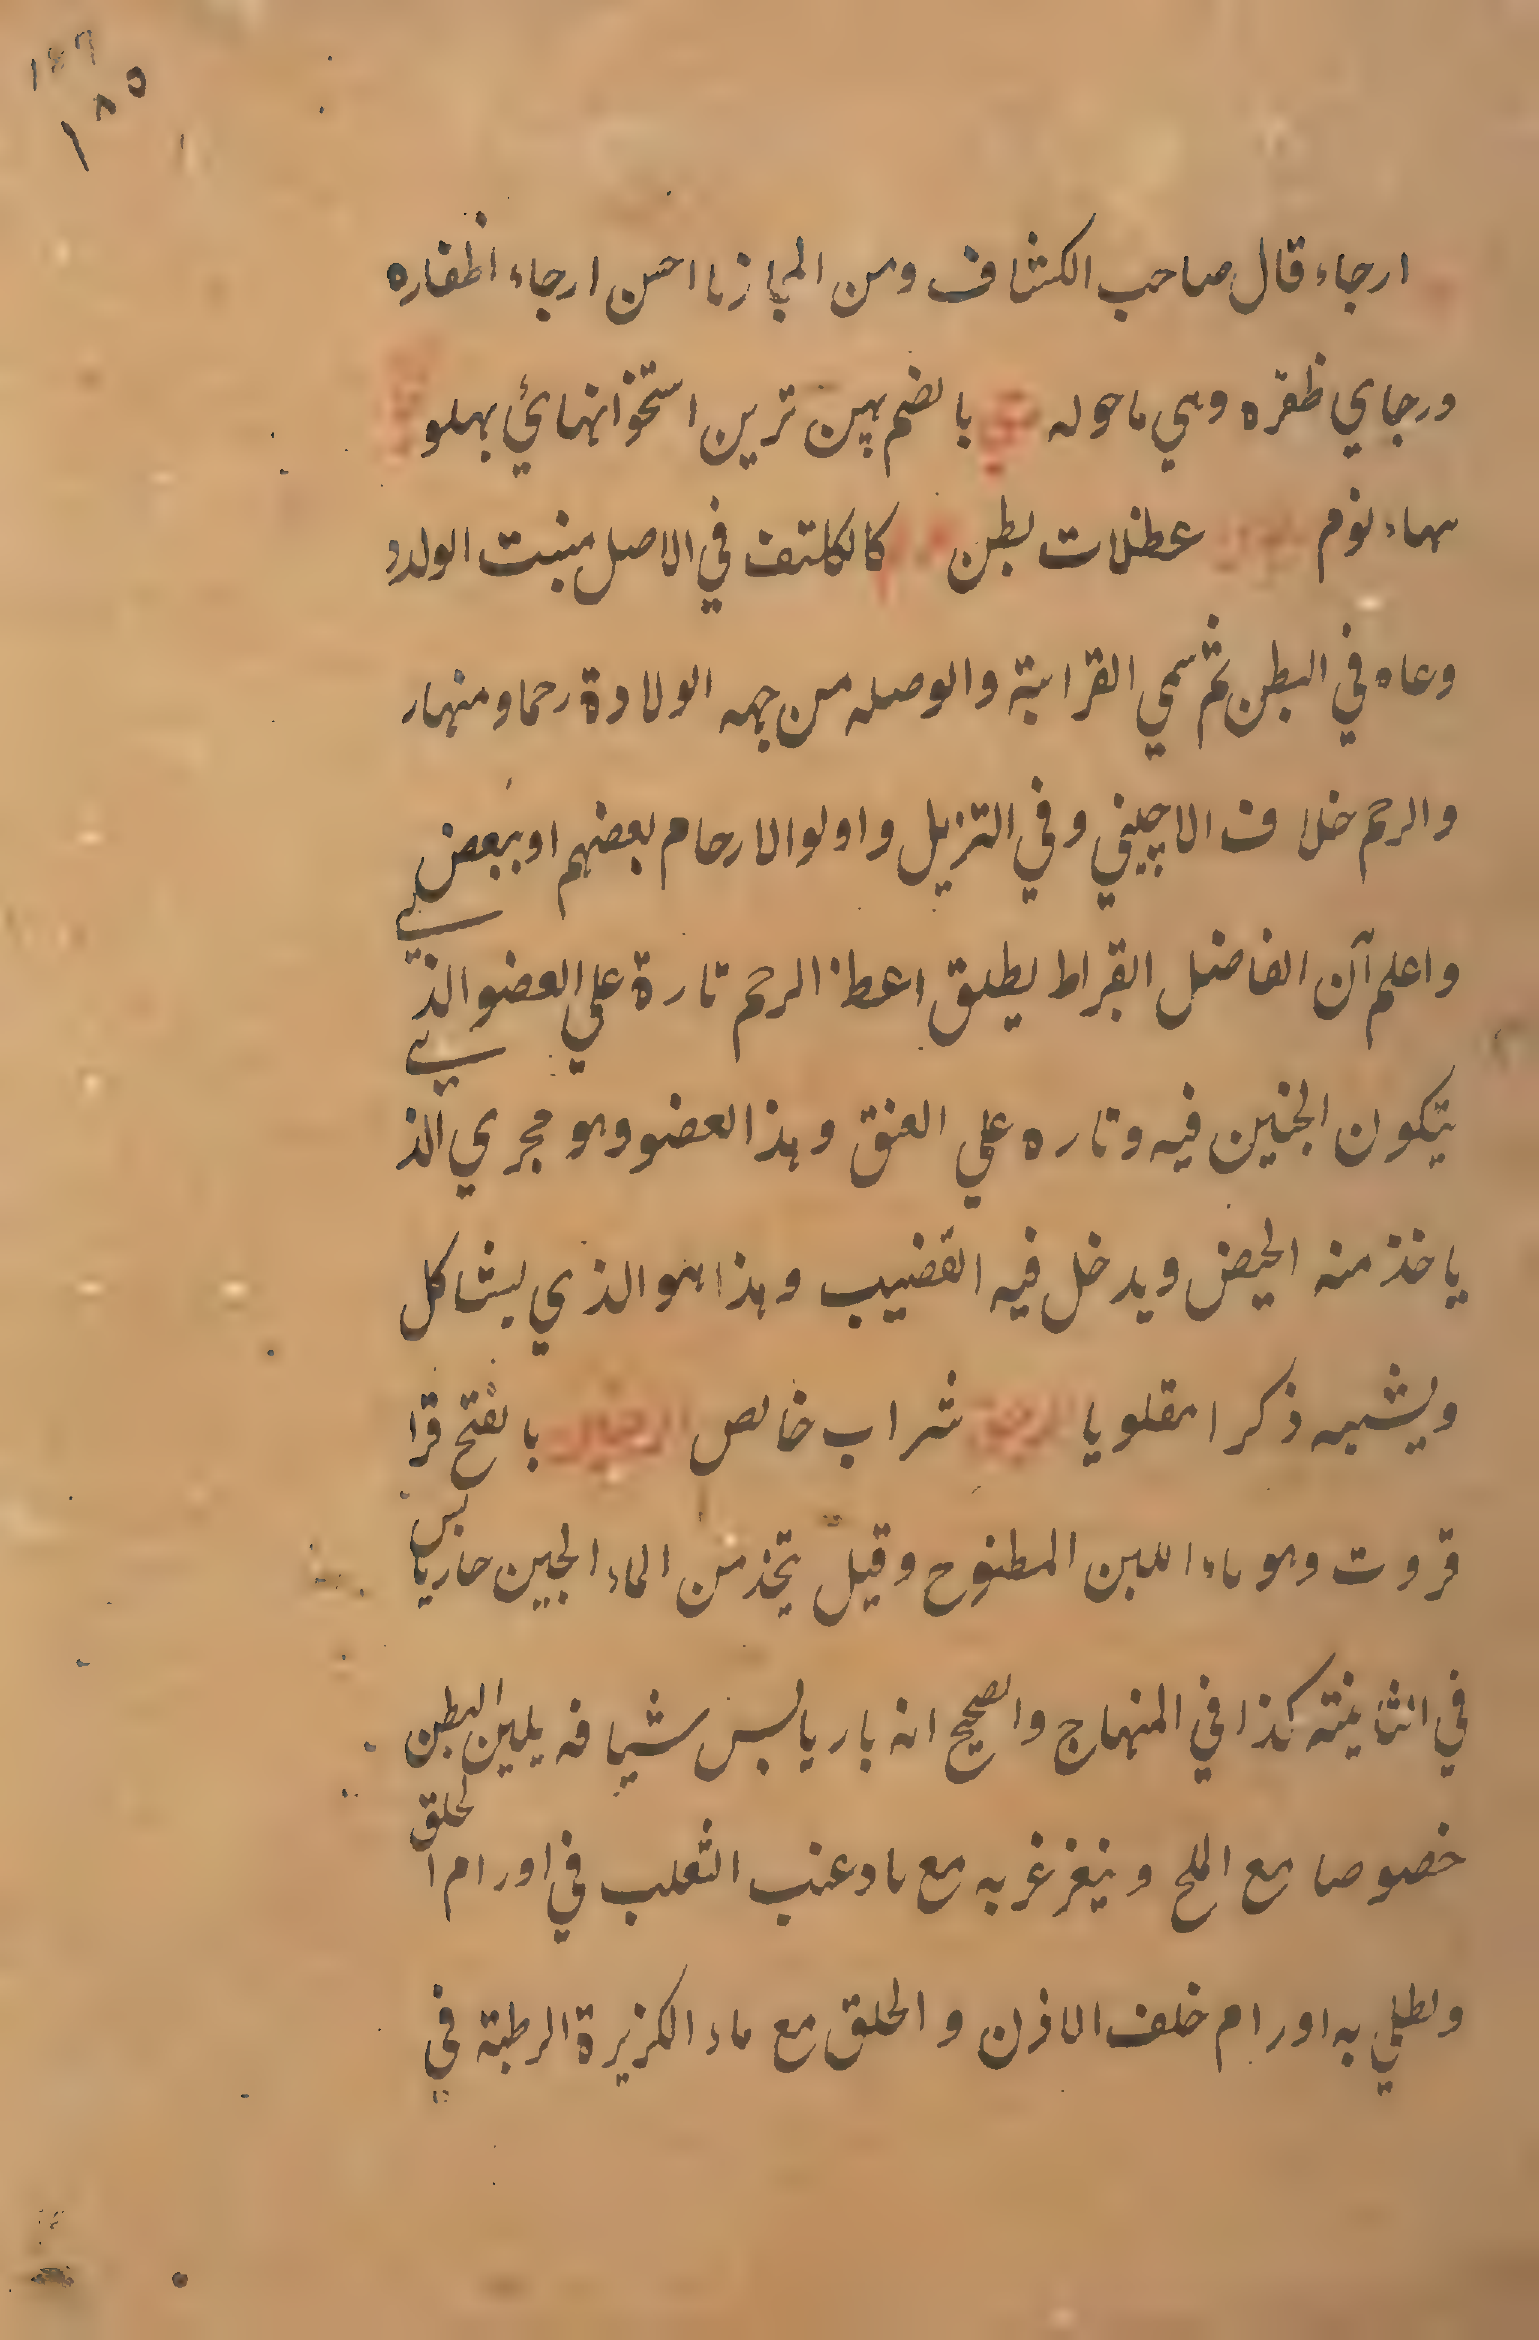 ١٤٦
١٨٥
ارجاء قال صاحب الكشاف ومن المجاز ما احسن ارجاء اظفاره
ورجاي ظفره وهي ما حوله بالضم پهن ترين استخوانهائي پهلو
سهاء نوم عظلات بطن كالكتف في الاصل منبت الولدو
وعاه في البطن ثم سمي القرابة والوصله من جهه الولادة رحما ومنهار
والرحم خلاف الاجيني وفي التزيل واولوا الارحام بعضهم اوببعض لي
واعلم آن الفاضل القراط يطلق اعطا الرحم تارة علي العضو الذي
يتكون الجنين فيه وتاره علي العنق وهذا العضو وهو مجري الذ
ياخذ منه الحيض ويدخل فيه القضيب وهذا هو الذي يشاكل
ويشبه ذكرا مقلوبا شراب خالص بالفتح قرا
قروت وهو ماء اللبن المطنوح وقيل يتخذ من الماء الجبين حار يابس
في الثانيته كذا في المنهاج والصحيح انه بار يابس شيافه يلين البطن
خصوصا مع الملح ويتغرغر به مع ماء عنب الثعلب في اورام الحلق
ويطلي به اورام خلف الاذن والحلق مع ماء الكزبرة الرطبة في